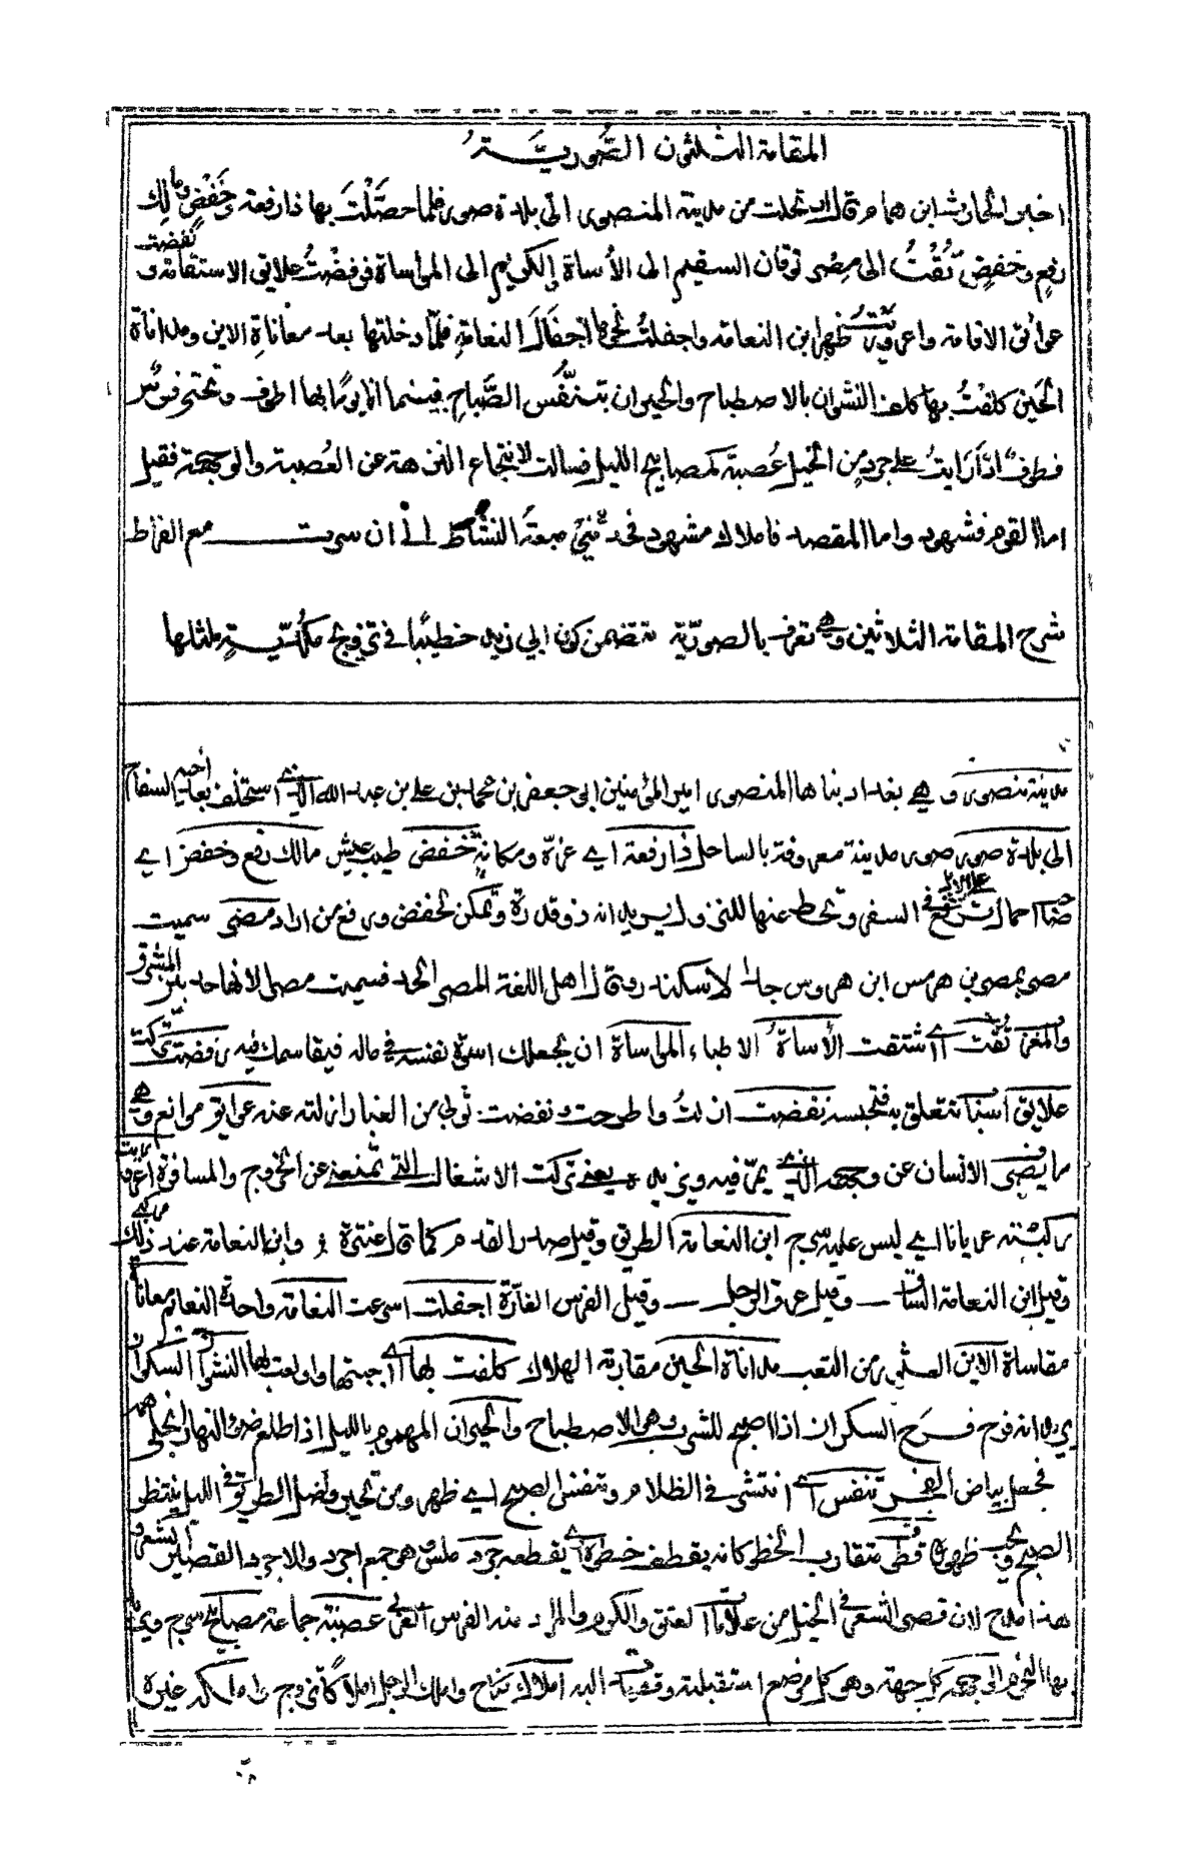 المقامة الثلثون الصورية
اخبر الحارث ابن همام قال ارتحلت من مدينة المنصور الى بلدة صور فلما حصلت بها ذا رفعة وخفض ومالك
رفع وخفض تقت الى مصر توقان السقيم الى الأساة والكريم الى المواساة فرفضت علائق الاستقامة ونفضت
عوائق الاقامة واعروريت ظهر ابن النعامة واجفلت نحوها اجفال النعامة فلما دخلتها بعد معاناة الاين ومداناة
الحين كلفت بها كلف النشوان بالاصطباح والحيران بتنفس الصباح فبينما انا يوما بها اطوف وتحتي فرس
قطوف اذ رايت على جرد من الخيل عصبة كمصابيح الليل فسالت لانتجاع النزهة عن العصبة والوجهة فقيل
اما القوم فشهود واما المقصد فاملاك مشهود فحدتني ميعة النشاط الى ان سرت مع الفراط
شرح المقامة الثلاثين وهي تعرف بالصورية تتضمن كون ابي زيد خطيبا في تزويج مكدية لمثلها
مدينة منصور وهي بغداد بناها المنصور امير المؤمنين ابي جعفر بن محمد بن علي بن عبد الله الذي استخلف بعد اخيه السفاح
الى بلدة صور صور مدينة معروفة بالساحل ذا رفعة اي عزة ومكانة خفض طيب عيش مالك رفع وخفض اي
احمال ترفع في السفر وتحط عنها للنزول يريد انه ذو قدرة وتمكن لخفض ورفع من اراد مصر سميت
مصر بمصر بن هرمس ابن هروس جد الاسكندر وقال اهل اللغة المصر الحد فسميت مصر لانها حد بين المشرق
والمغرب تقت اي اشتقت الأساة الاطباء المواساة ان يجعلك اسوة نفسه في ماله فيقاسمك فيه رفضت تركت
علايق اسباب تتعلق به فتحبسه نفضت ازلت واطرحت ونفضت ثوبي من الغبار ازلته عنه عوايق موانع وهي
ما يصرف الانسان عن وجهه الذي يمر فيه ويزيله يعني تركت الاشغال التي تمنعه عن الخروج والمسافرة اعروريت
ركبته عريانا اي ليس عليه سرج ابن النعامة الطريق وقيل صدر القدم كما قال عنترة وابن النعامة عند ذلك مركبي
وقيل ابن النعامة الساق وقيل عرق الرجل وقيل الفرس الفارة اجفلت اسرعت النعامة واحدة النعائم معاناة
مقاساة الاين العشي من التعب مداناة الحين مقاربة الهلاك كلفت بها اي احببتها واولعت بها النشوان السكران
يريد انه فرح فرح السكران اذا اصبح للشرب وهو الاصطباح والحيران المهموم بالليل اذا طلع ضوء النهار انجلى همه
فحصل بياض الفجر تنفس اي انتشر في الظلام وتنفس الصبح اي ظهر ومن تحير وضل الطريق في الليل ينتظر
الصبح ظهوره قطوف متقارب الخطو كانه يقطف خطوه اي يقطعه جرد ملس وهي جمع اجرد والاجرد القصير الشعر و
هذا مدح لان قصر الشعر في الخيل من علامات العتق والكرم والمراد منه الفرس العربي عصبة جماعة مصباح سرج
بها الوجهة كل جهة وهو كل موضع استقبلته وقصدت اليه املاك نكاح واملك الرجل املاكا تزوج واملكه غيره